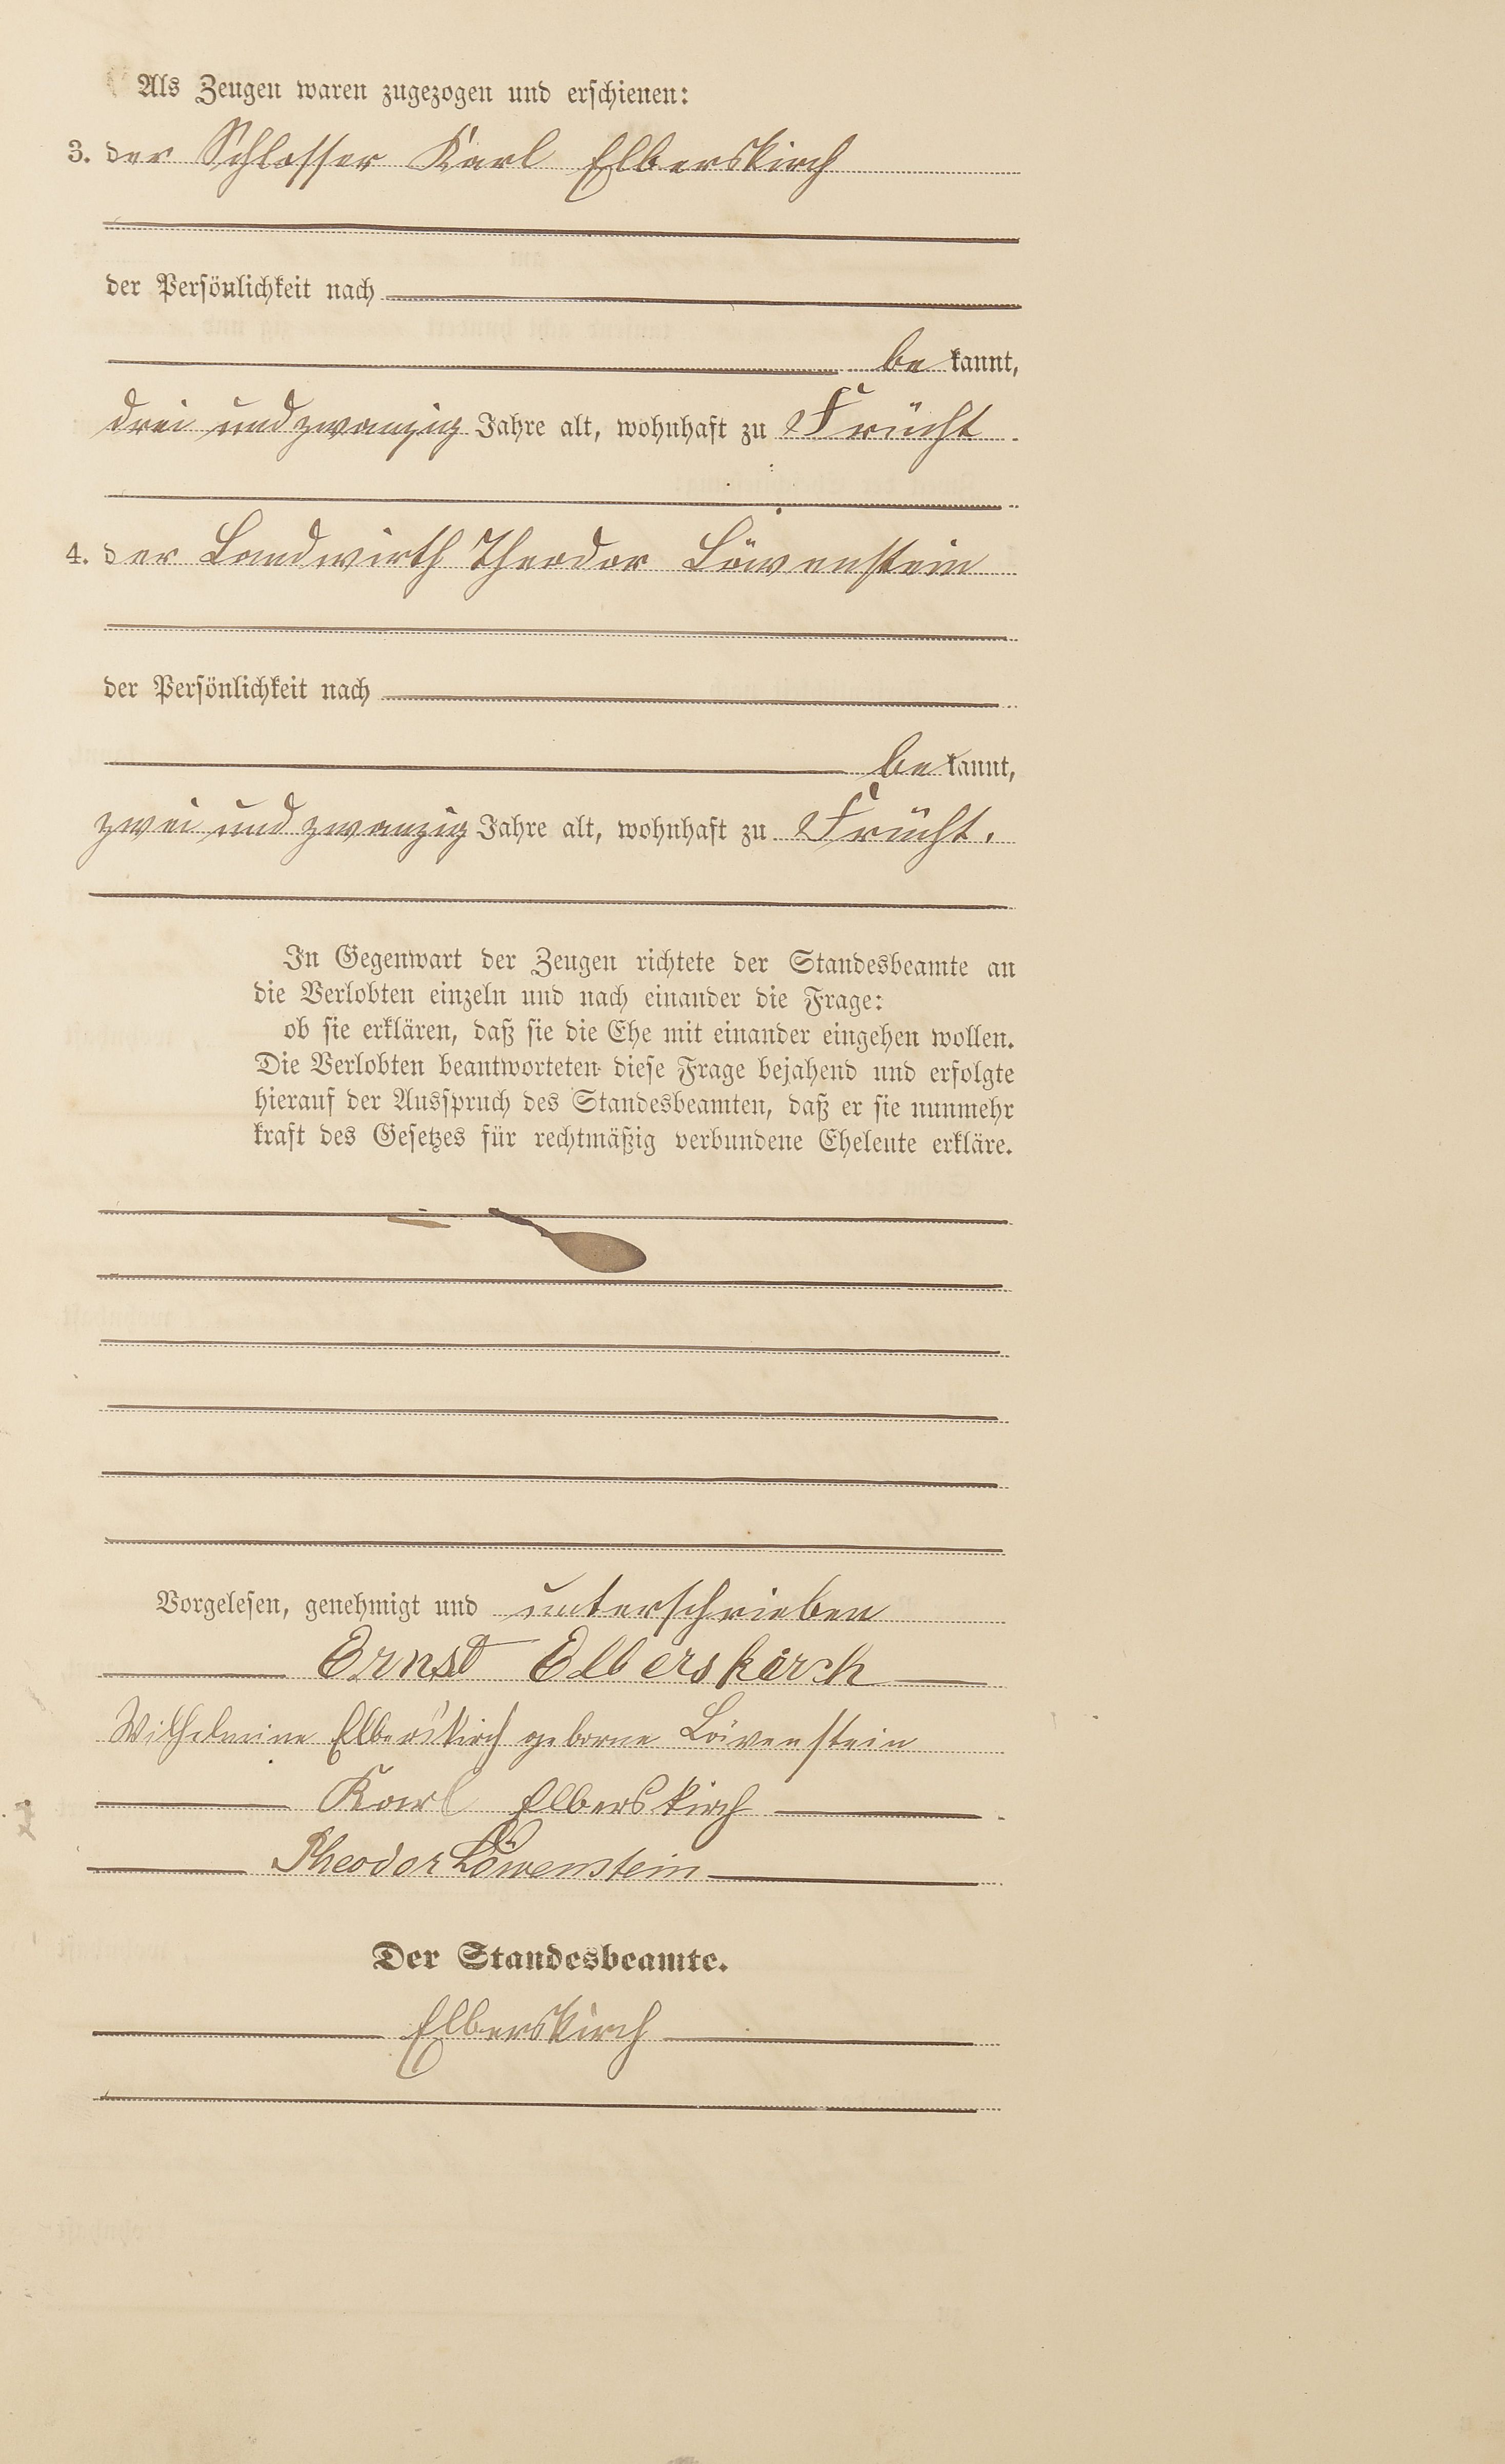 Als Zeugen waren zugezogen und erschienen:
3. der Schlosser Karl Elberskirch
der Persönlichkeit nach
be kannt,
drei und zwanzig Jahre alt, wohnhaft zu Frücht
4. der Landwirth Theodor Löwenstein
der Persönlichkeit nach
be kannt,
zwei und zwanzig Jahre alt, wohnhaft zu Frücht.
In Gegenwart der Zeugen richtete der Standesbeamte an
die Verlobten einzeln und nach einander die Frage:
ob sie erklären, daß sie die Ehe mit einander eingehen wollen.
Die Verlobten beantworteten diese Frage bejahend und erfolgte
hierauf der Ausspruch des Standesbeamten, daß er sie nunmehr
kraft des Gesetzes für rechtmäßig verbundene Eheleute erkläre.
Vorgelesen, genehmigt und unterschrieben
Ernst Elberskirch
Wilhelmine Elberskirch geborne Löwenstein
Karl Elberskirch
Theodor Löwenstein
Der Standesbeamte.
Elberskirch